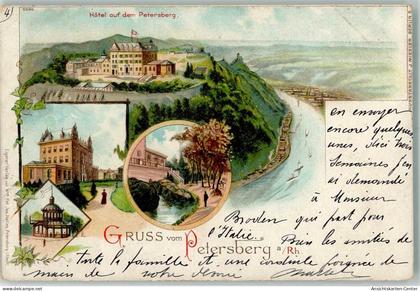 4)
Hôtel auf dem Petersberg.
en envoyer
encore quelques
unes, d'ici trois
semaines j'en
ai demandé
à Monsieur
Broden qui part pour
l'Italie. Bien les amitiés de
GRUSS vom Petersberg a/Rh.
toute la famille et une cordiale poignée de
main de votre dévoué
Ansichtskarten-Center